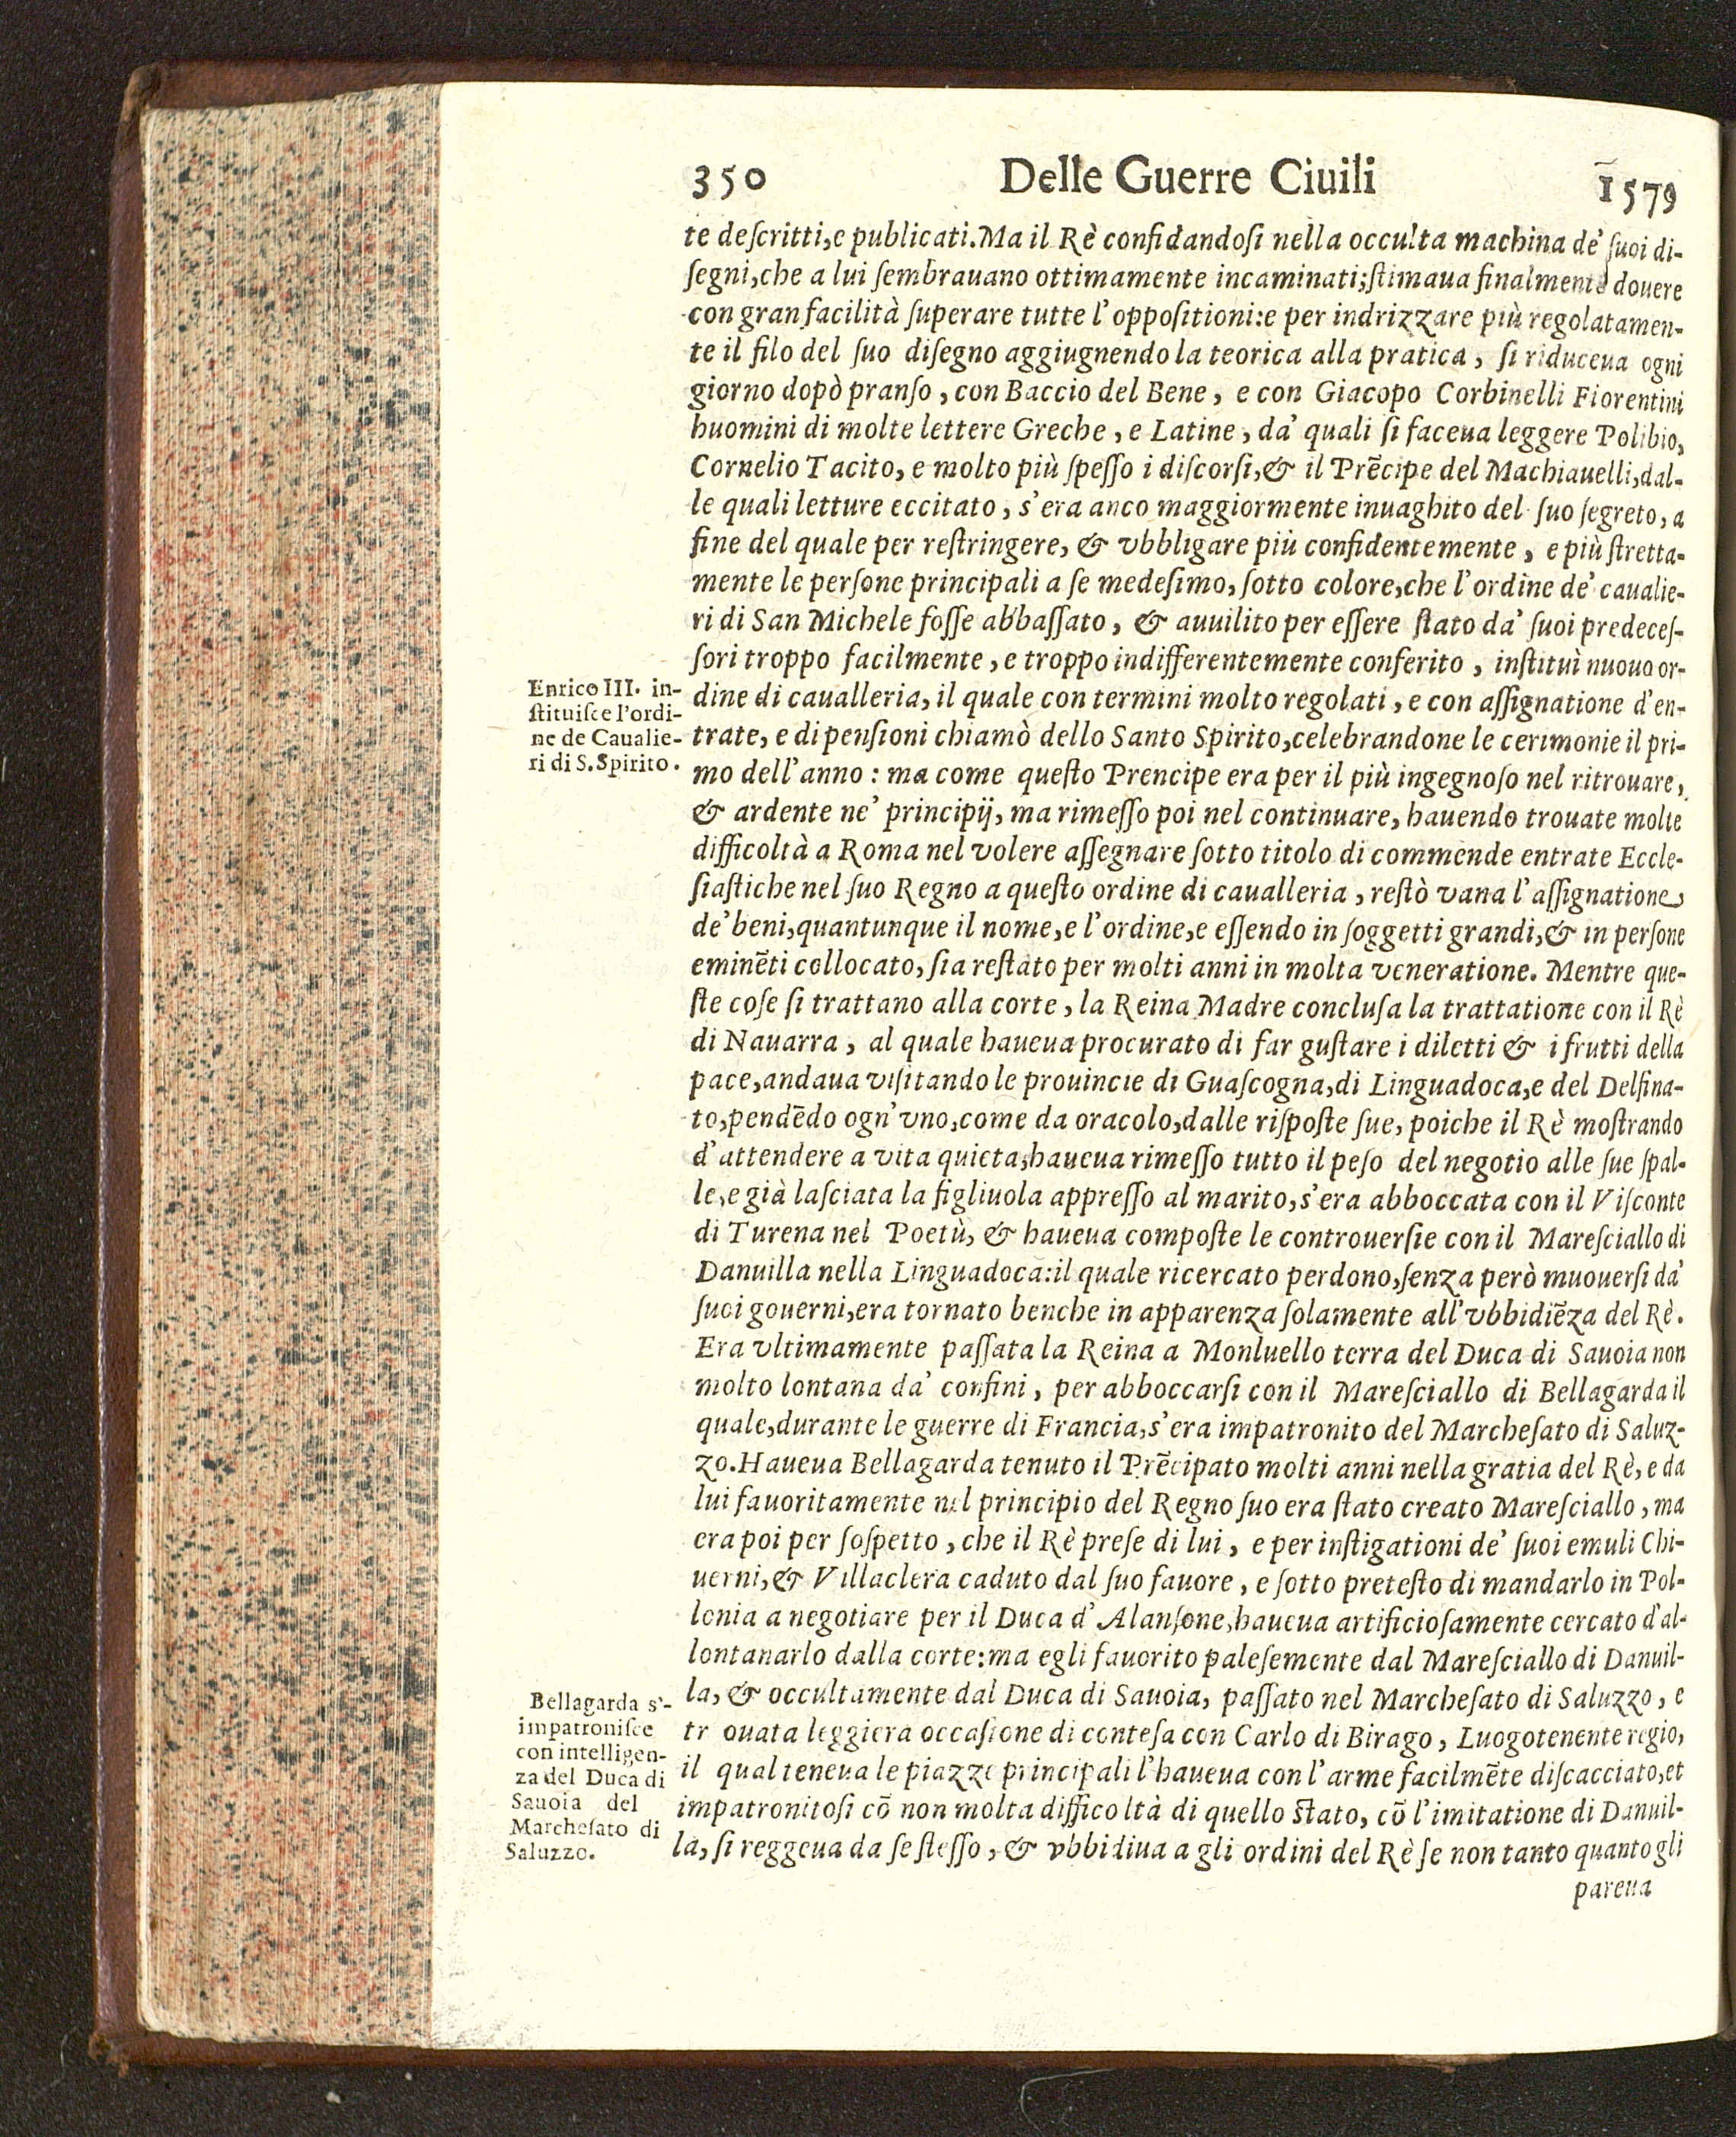 350 Delle Guerre Ciuili 1579
te deſcritti,e publicati.Ma il Rè confidandoſi nella occulta machina de' ſuoi di-
ſegni,che a lui ſembrauano ottimamente incaminati;ſtimaua finalmente douere
con gran facilità ſuperare tutte l'oppoſitioni:e per indrizzare più regolatamen-
te il filo del ſuo diſegno aggiugnendo la teorica alla pratica, ſi riduceua ogni
giorno dopò pranſo, con Baccio del Bene, e con Giacopo Corbinelli Fiorentini
huomini di molte lettere Greche, e Latine, da' quali ſi faceua leggere Polibio,
Cornelio Tacito, e molto più ſpeſſo i diſcorſi,& il Prēcipe del Machiauelli,dal-
le quali letture eccitato, s'era anco maggiormente inuaghito del ſuo ſegreto, a
fine del quale per reſtringere, & vbbligare più confidentemente, e più ſtretta-
mente le perſone principali a ſe medeſimo, ſotto colore,che l'ordine de' caualie-
ri di San Michele foſſe abbaſſato, & auuilito per eſſere ſtato da' ſuoi predeceſ-
ſori troppo facilmente, e troppo indifferentemente conferito, inſtituì nuouo or-
dine di caualleria, il quale con termini molto regolati, e con aſſignatione d'en-
trate, e di penſioni chiamò dello Santo Spirito,celebrandone le cerimonie il pri-
mo dell'anno: ma come queſto Prencipe era per il più ingegnoſo nel ritrouare,
& ardente ne' principij, ma rimeſſo poi nel continuare, hauendo trouate molte
difficoltà a Roma nel volere aſſegnare ſotto titolo di commende entrate Eccle-
ſiaſtiche nel ſuo Regno a queſto ordine di caualleria, reſtò vana l'aſſignatione
de' beni,quantunque il nome,e l'ordine,e eſſendo in ſoggetti grandi,& in perſone
eminēti collocato, ſia reſtato per molti anni in molta veneratione. Mentre que-
ſte coſe ſi trattano alla corte, la Reina Madre concluſa la trattatione con il Rè
di Nauarra, al quale haueua procurato di far guſtare i diletti & i frutti della
pace,andaua viſitando le prouincie di Guaſcogna,di Linguadoca,e del Delfina-
to,pendēdo ogn'vno,come da oracolo,dalle riſpoſte ſue, poiche il Rè moſtrando
d'attendere a vita quieta,haueua rimeſſo tutto il peſo del negotio alle ſue ſpal-
le,e già laſciata la figliuola appreſſo al marito,s'era abboccata con il Viſconte
di Turena nel Poetù, & haueua compoſte le controuerſie con il Mareſciallo di
Danuilla nella Linguadoca:il quale ricercato perdono,ſenza però muouerſi da'
ſuoi gouerni,era tornato benche in apparenza ſolamente all'vbbidiēza del Rè.
Era vltimamente paſſata la Reina a Monluello terra del Duca di Sauoia non
molto lontana da' confini, per abboccarſi con il Mareſciallo di Bellagarda il
quale,durante le guerre di Francia,s'era impatronito del Marcheſato di Saluz-
zo.Haueua Bellagarda tenuto il Prēcipato molti anni nella gratia del Rè, e da
lui fauoritamente nel principio del Regno ſuo era ſtato creato Mareſciallo, ma
era poi per ſoſpetto, che il Rè preſe di lui, e per inſtigationi de' ſuoi emuli Chi-
uerni,& Villaclera caduto dal ſuo fauore, e ſotto preteſto di mandarlo in Pol-
lonia a negotiare per il Duca d'Alanſone,haueua artificioſamente cercato d'al-
lontanarlo dalla corte:ma egli fauorito paleſemente dal Mareſciallo di Danuil-
la, & occultamente dal Duca di Sauoia, paſſato nel Marcheſato di Saluzzo, e
tr ouata leggiera occaſione di conteſa con Carlo di Birago, Luogotenente regio,
il qual teneua le piazze principali l'haueua con l'arme facilmēte diſcacciato,et
impatronitoſi cō non molta difficoltà di quello Stato, cō l'imitatione di Danuil-
la, ſi reggeua da ſe ſteſſo, & vbbidiua a gli ordini del Rè ſe non tanto quanto gli
pareua
Enrico III. in-
ſtituiſce l'ordi-
ne de Caualie-
ri di S.Spirito.
Bellagarda s'-
impatroniſce
con intelligen-
za del Duca di
Sauoia del
Marcheſato di
Saluzzo.